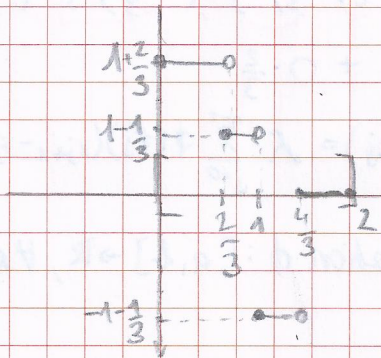 1+2/3
1-1/3
2/3 1 4/3 2
-1-1/3